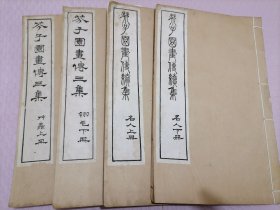 芥子園畫傳三集
草蟲上冊
芥子園畫傳三集
翎毛下冊
芥子園畫傳續集
名人上冊
芥子園畫傳續集
名人下冊